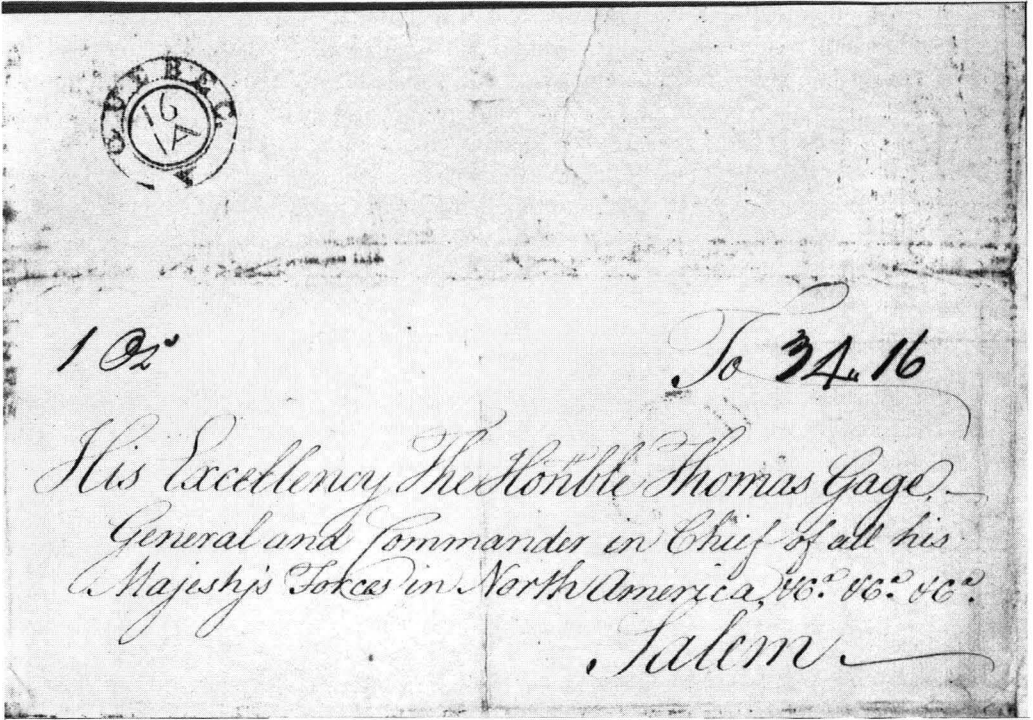 QUEBEC
16
IA
1 Oz
To 34.. 16
His Excellency The Hon'ble Thomas Gage. —
General and Commander in Chief of all his
Majesty's Forces in North America, &c.a &c.a &c.a
Salem —